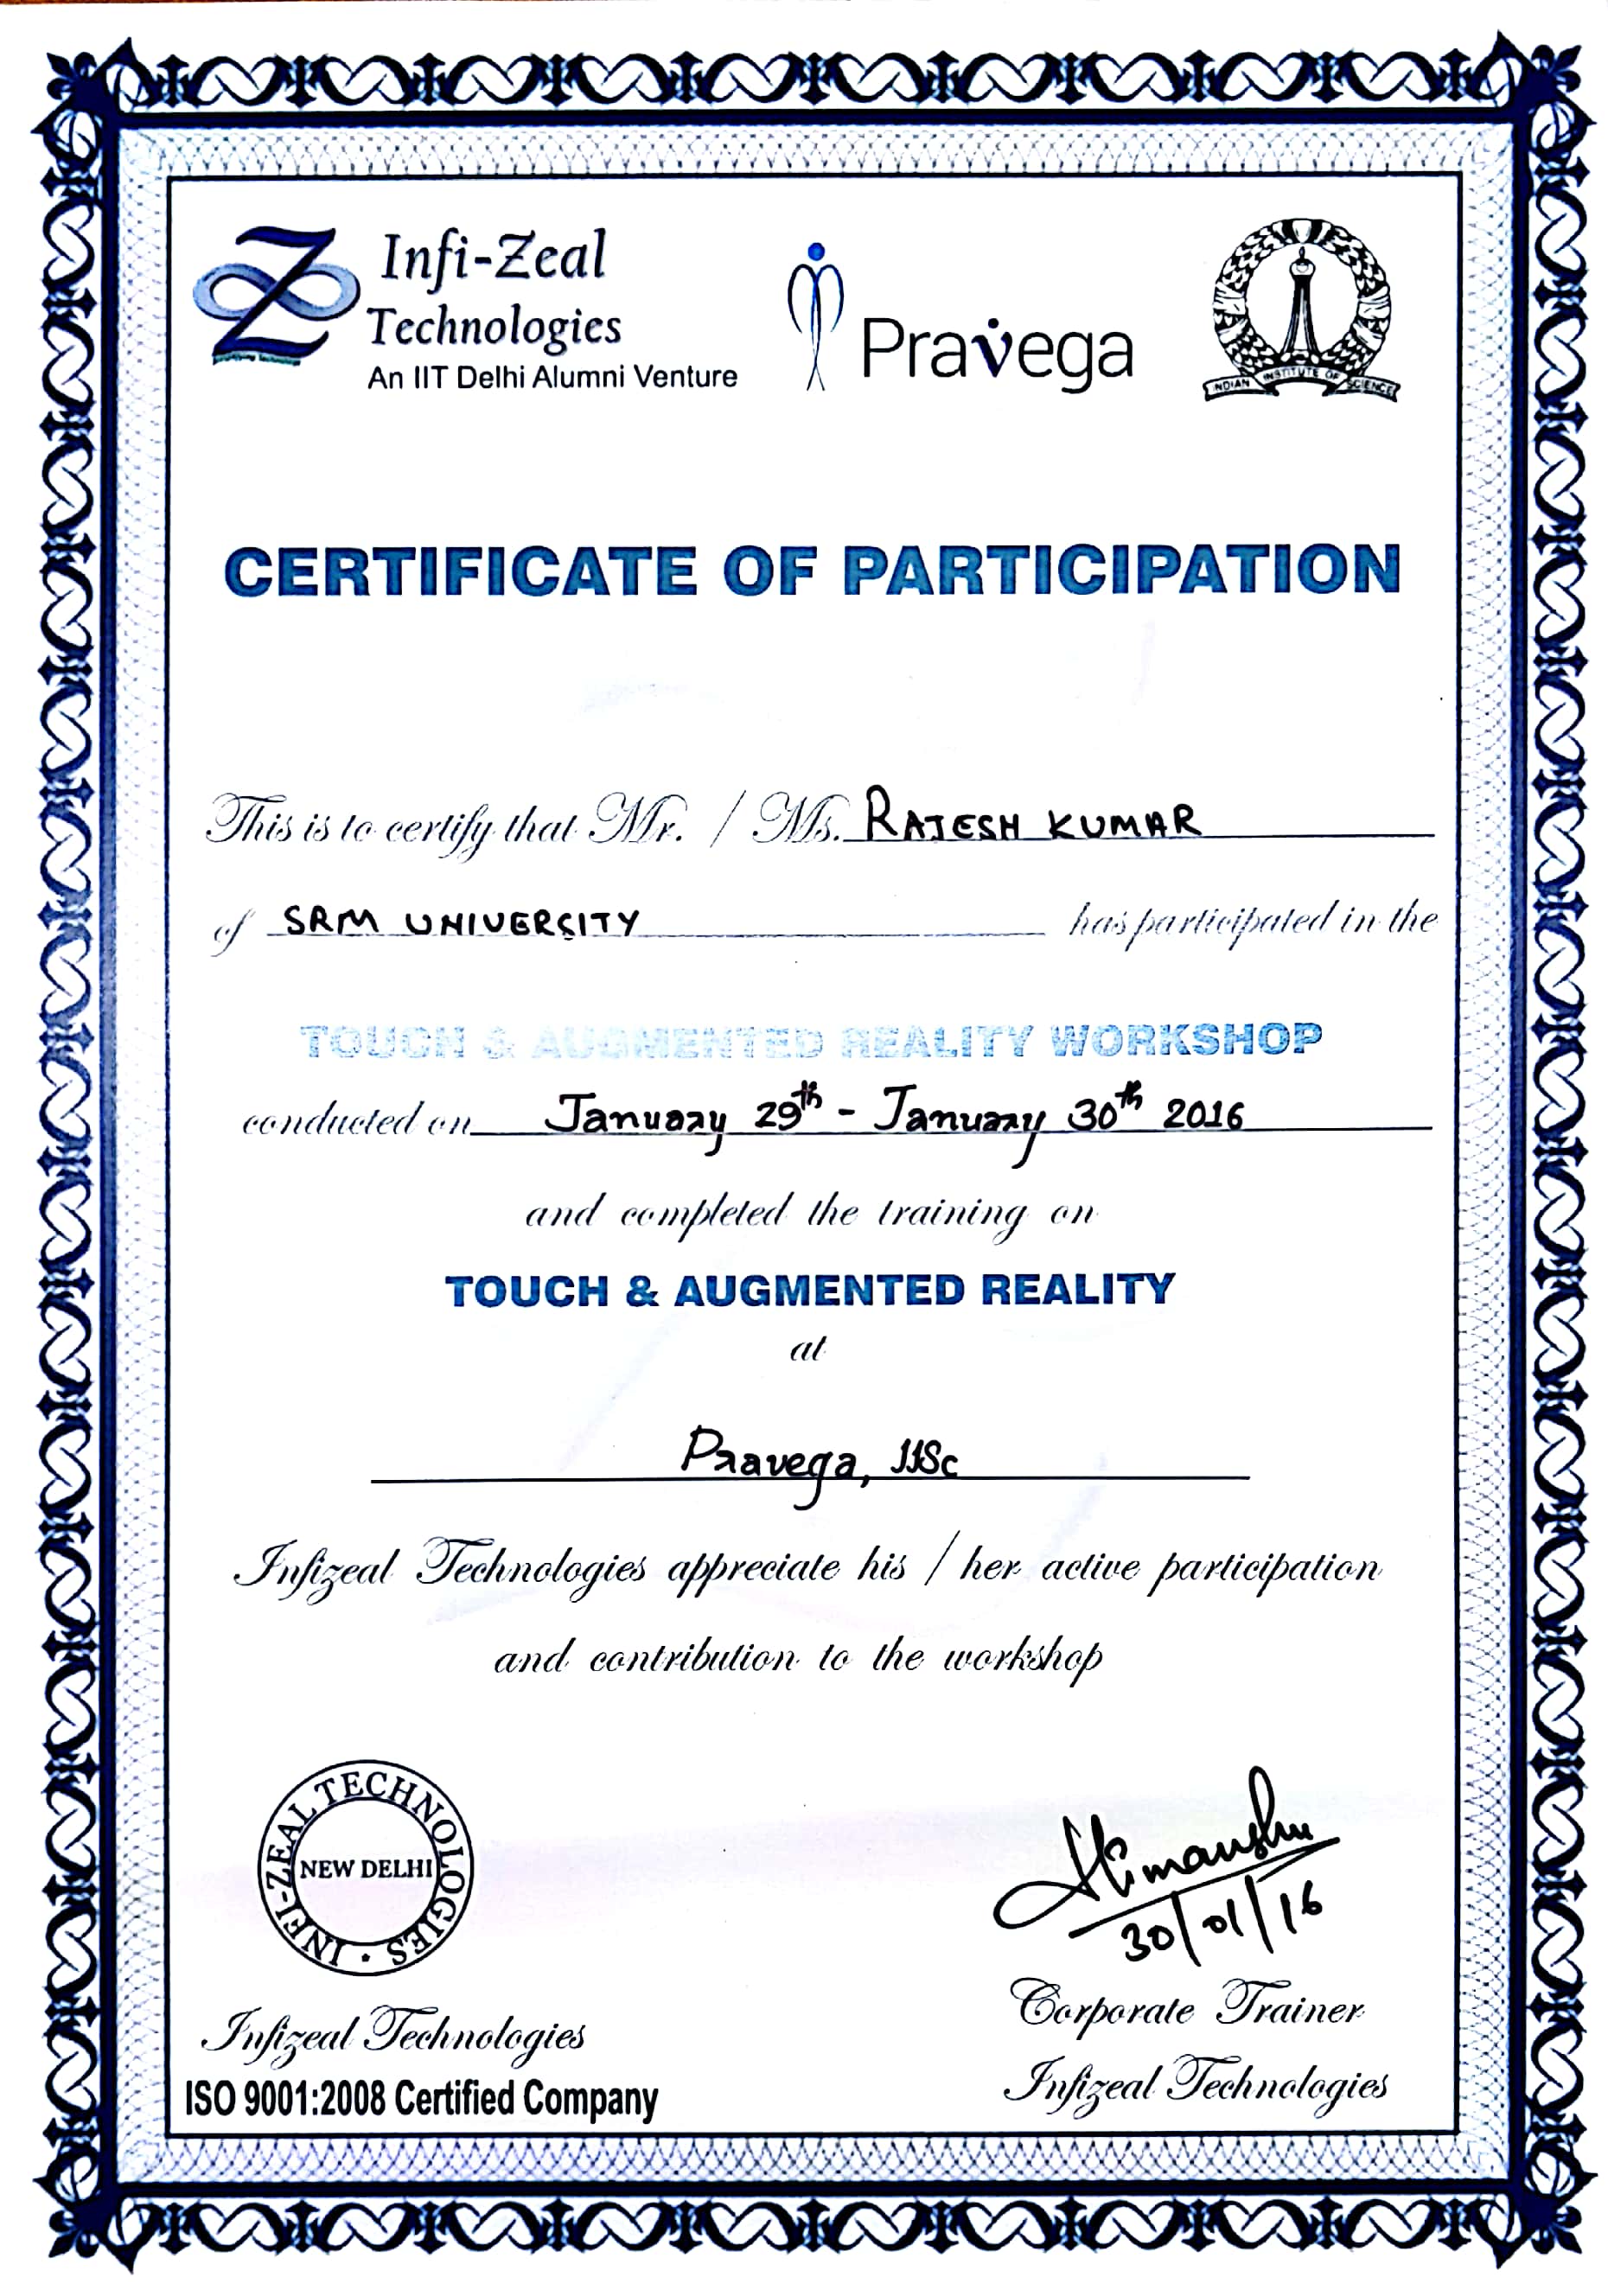 Infi-Zeal
Technologies
An IIT Delhi Alumni Venture
Pravega
INDIAN INSTITUTE OF SCIENCE
CERTIFICATE OF PARTICIPATION
This is to certify that Mr. / Ms. RAJESH KUMAR
of SRM UNIVERSITY has participated in the
TOUCH & AUGMENTED REALITY WORKSHOP
conducted on January 29th - January 30th 2016
and completed the training on
TOUCH & AUGMENTED REALITY
at
Pravega, IISc
Infizeal Technologies appreciate his / her active participation
and contribution to the workshop
INFI-ZEAL TECHNOLOGIES
NEW DELHI
Himanshu
30/01/16
Infizeal Technologies
ISO 9001:2008 Certified Company
Corporate Trainer
Infizeal Technologies